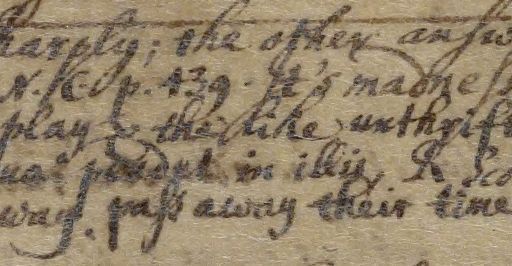 harply; the other answ
N. C. p. 439. It's madness
play & the like unthrift
in illis, &
way, pass away their time